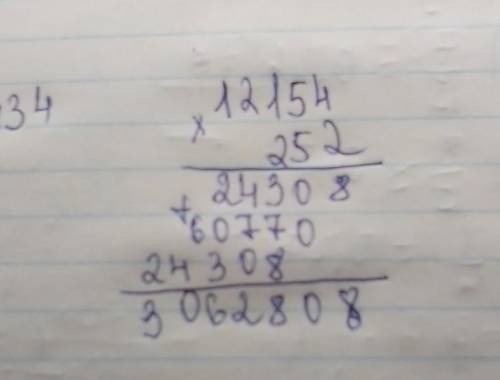 34
12154
×
252
24308
+
60770
24308
3062808